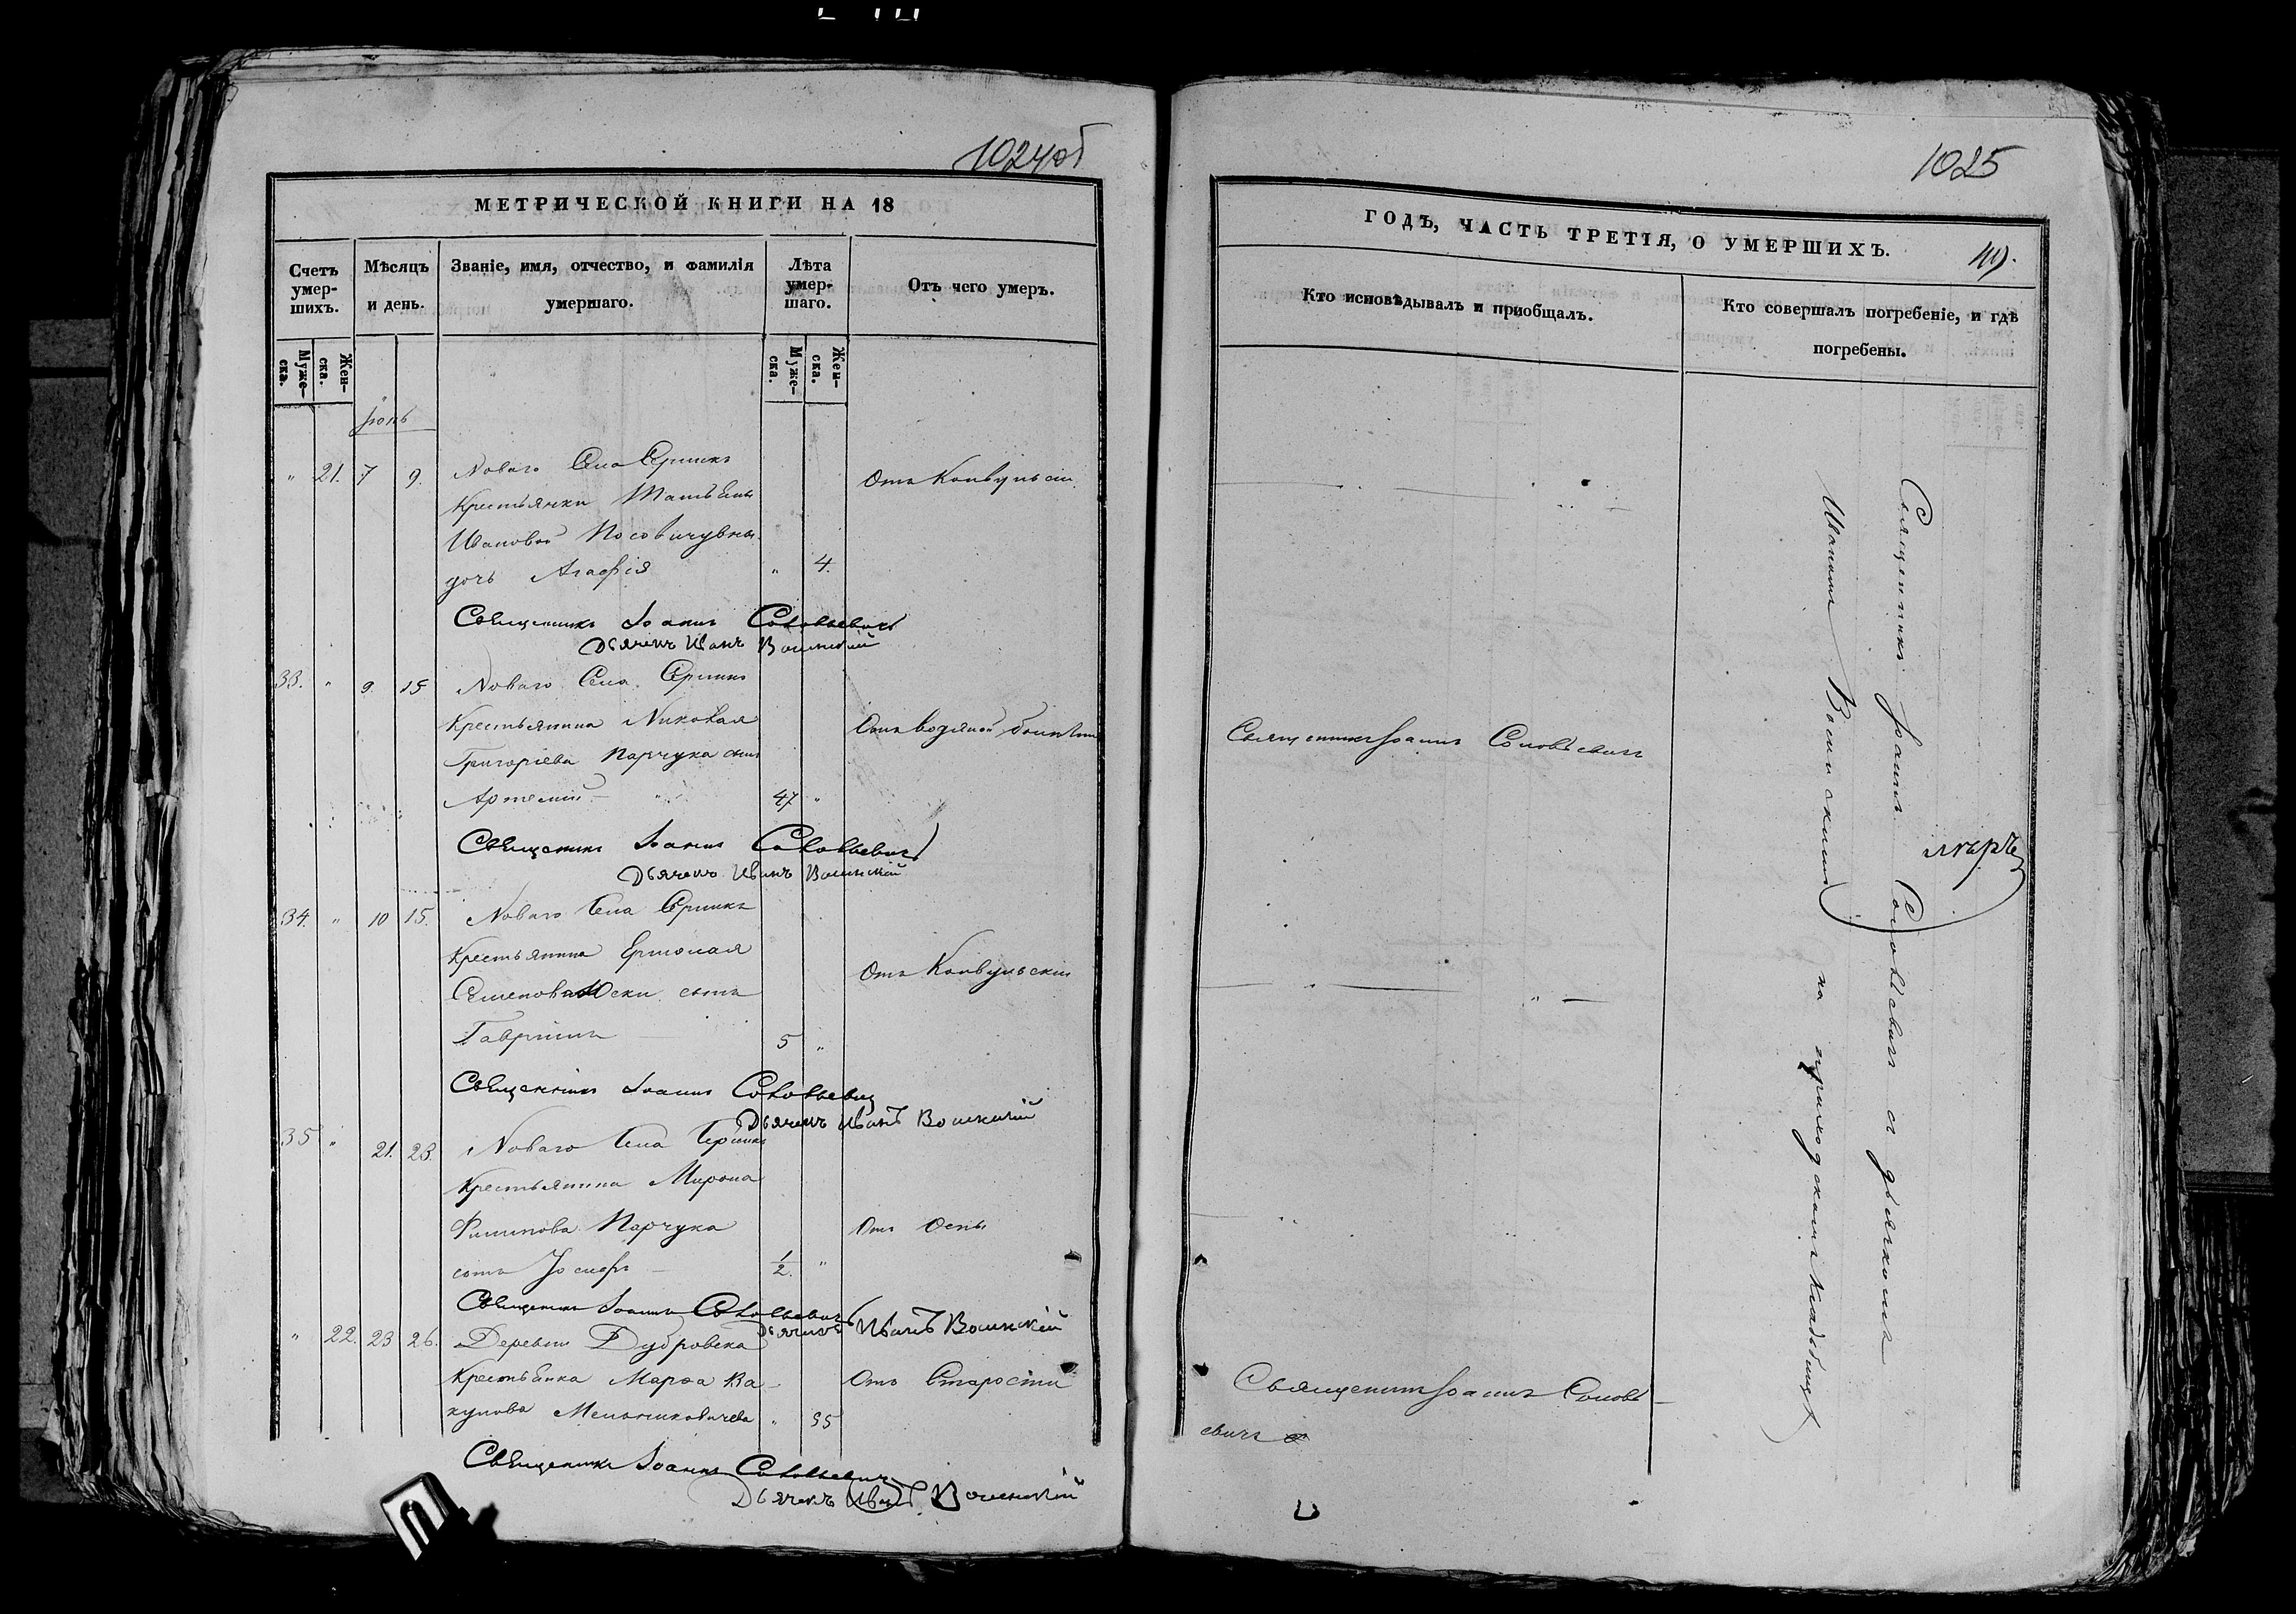 1024об
МЕТРИЧЕСКОЙ КНИГИ НА 18
Счетъ умер-шихъ.
Мѣсяцъ и день.
Званіе, имя, отчество, и фамилія умершаго.
Лѣта умер-шаго.
Отъ чего умеръ.
Муже-ска.
Жен-ска.
Муже-ска.
Жен-ска.
Іюнь
" 21. 7 9. Новаго Села
Крестьянки Татьяны Отъ Конвульсіи
Ивановой
дочь Агафія " 4.
Священникъ Іоаннъ Соловьевичъ
Дьячекъ Иванъ Воинскій
33. " 9 15 Новаго Села
Крестьянина Николая Отъ водяной болѣзни
Григоріева Парчука сынъ
Артемій 47 "
Священникъ Іоаннъ Соловьевичъ
Дьячекъ Иванъ Воинскій
34. " 10 15. Новаго Села
Крестьянина Ермолая Отъ Конвульсіи
Семенова сынъ
Гавріилъ 5 "
Священникъ Іоаннъ Соловьевичъ
Дьячекъ Иванъ Воинскій
35 " 21. 23. Новаго Села
Крестьянина Мирона
Филипова Парчука Отъ Оспы
сынъ Іосифъ 1/2. "
Священникъ Іоаннъ Соловьевичъ
Дьячекъ Иванъ Воинскій
" 22. 23 26. Деревни Дубровска
Крестьянка Марфа Ва- Отъ Старости
кулова Мельниковичева "
Священникъ Іоаннъ Соловьевичъ
Дьячекъ Иванъ Воинскій
1025
ГОДЪ, ЧАСТЬ ТРЕТІЯ, О УМЕРШИХЪ.
Кто исповѣдывалъ и пріобщалъ.
Кто совершалъ погребеніе, и гдѣ погребены.
Священникъ Іоаннъ Соловьевичъ
Священникъ Іоаннъ Соловь-
евичъ
Священникъ Іоаннъ Соловьевичъ съ дьячкомъ
Иваномъ Воинскимъ на приходскомъ кладбищѣ